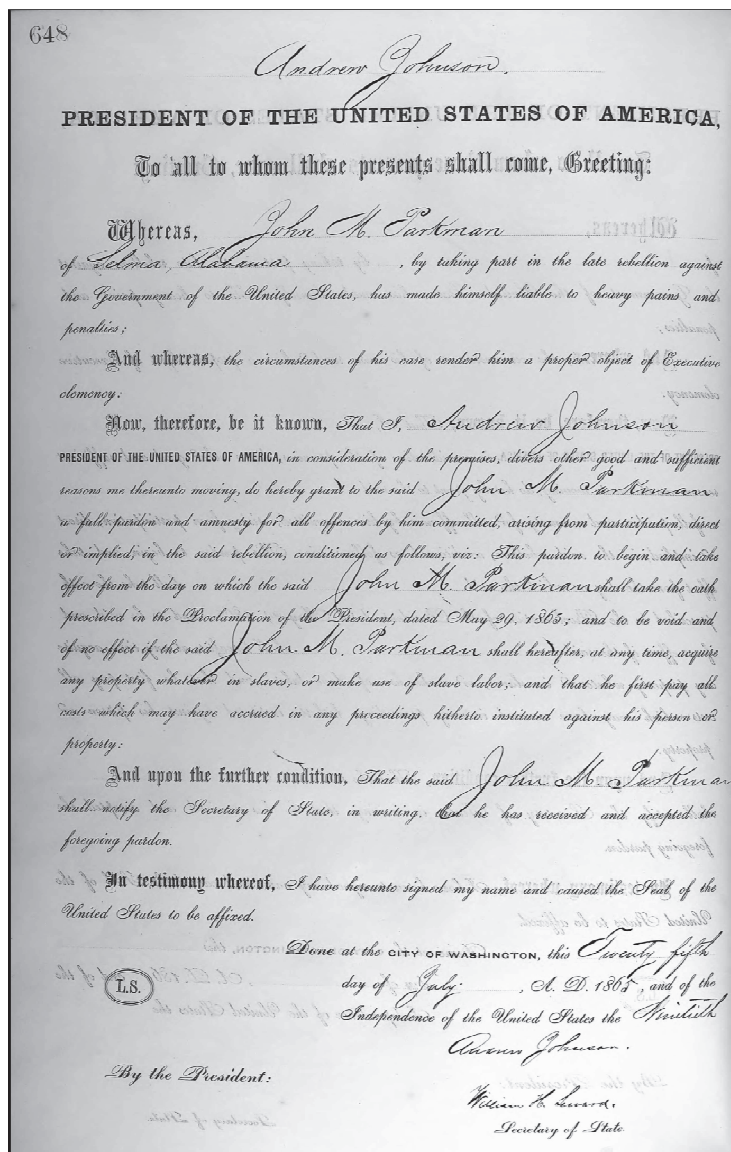 648
Andrew Johnson.
PRESIDENT OF THE UNITED STATES OF AMERICA,
To all to whom these presents shall come, Greeting:
Whereas, John M. Parkman
of Selma, Alabama , by taking part in the late rebellion against
the Government of the United States, has made himself liable to heavy pains and
penalties;
And whereas, the circumstances of his case render him a proper object of Executive
clemency:
Now, therefore, be it known, That I, Andrew Johnson
PRESIDENT OF THE UNITED STATES OF AMERICA, in consideration of the premises, divers other good and sufficient
reasons me thereunto moving, do hereby grant to the said John M. Parkman
a full pardon and amnesty for all offences by him committed, arising from participation, direct
or implied, in the said rebellion, conditioned as follows, viz: This pardon to begin and take
effect from the day on which the said John M. Parkman shall take the oath
prescribed in the Proclamation of the President, dated May 29, 1865; and to be void and
of no effect if the said John M. Parkman shall hereafter, at any time, acquire
any property whatever in slaves, or make use of slave labor; and that he first pay all
costs which may have accrued in any proceedings hitherto instituted against his person or
property:
And upon the further condition, That the said John M Parkman
shall notify the Secretary of State, in writing, that he has received and accepted the
foregoing pardon.
In testimony whereof, I have hereunto signed my name and caused the Seal of the
United States to be affixed.
Done at the CITY OF WASHINGTON, this Twenty fifth
L.S. day of July , A. D. 1865, and of the
Independence of the United States the Ninetieth
Andrew Johnson.
By the President:
William H. Seward.
Secretary of State